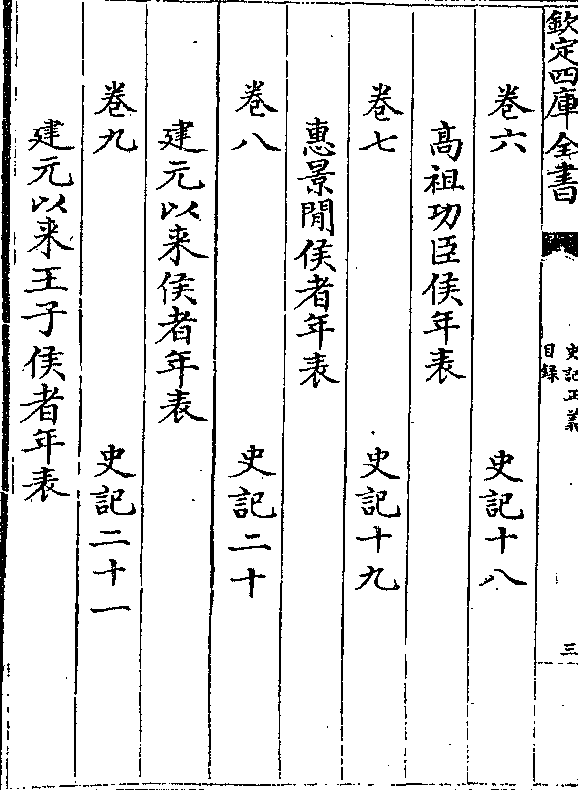 欽定四庫全書
史記正義
目録
三
卷六 史記十八
高祖功臣侯年表
卷七 史記十九
惠景閒侯者年表
卷八 史記二十
建元以来侯者年表
卷九 史記二十一
建元以来王子侯者年表